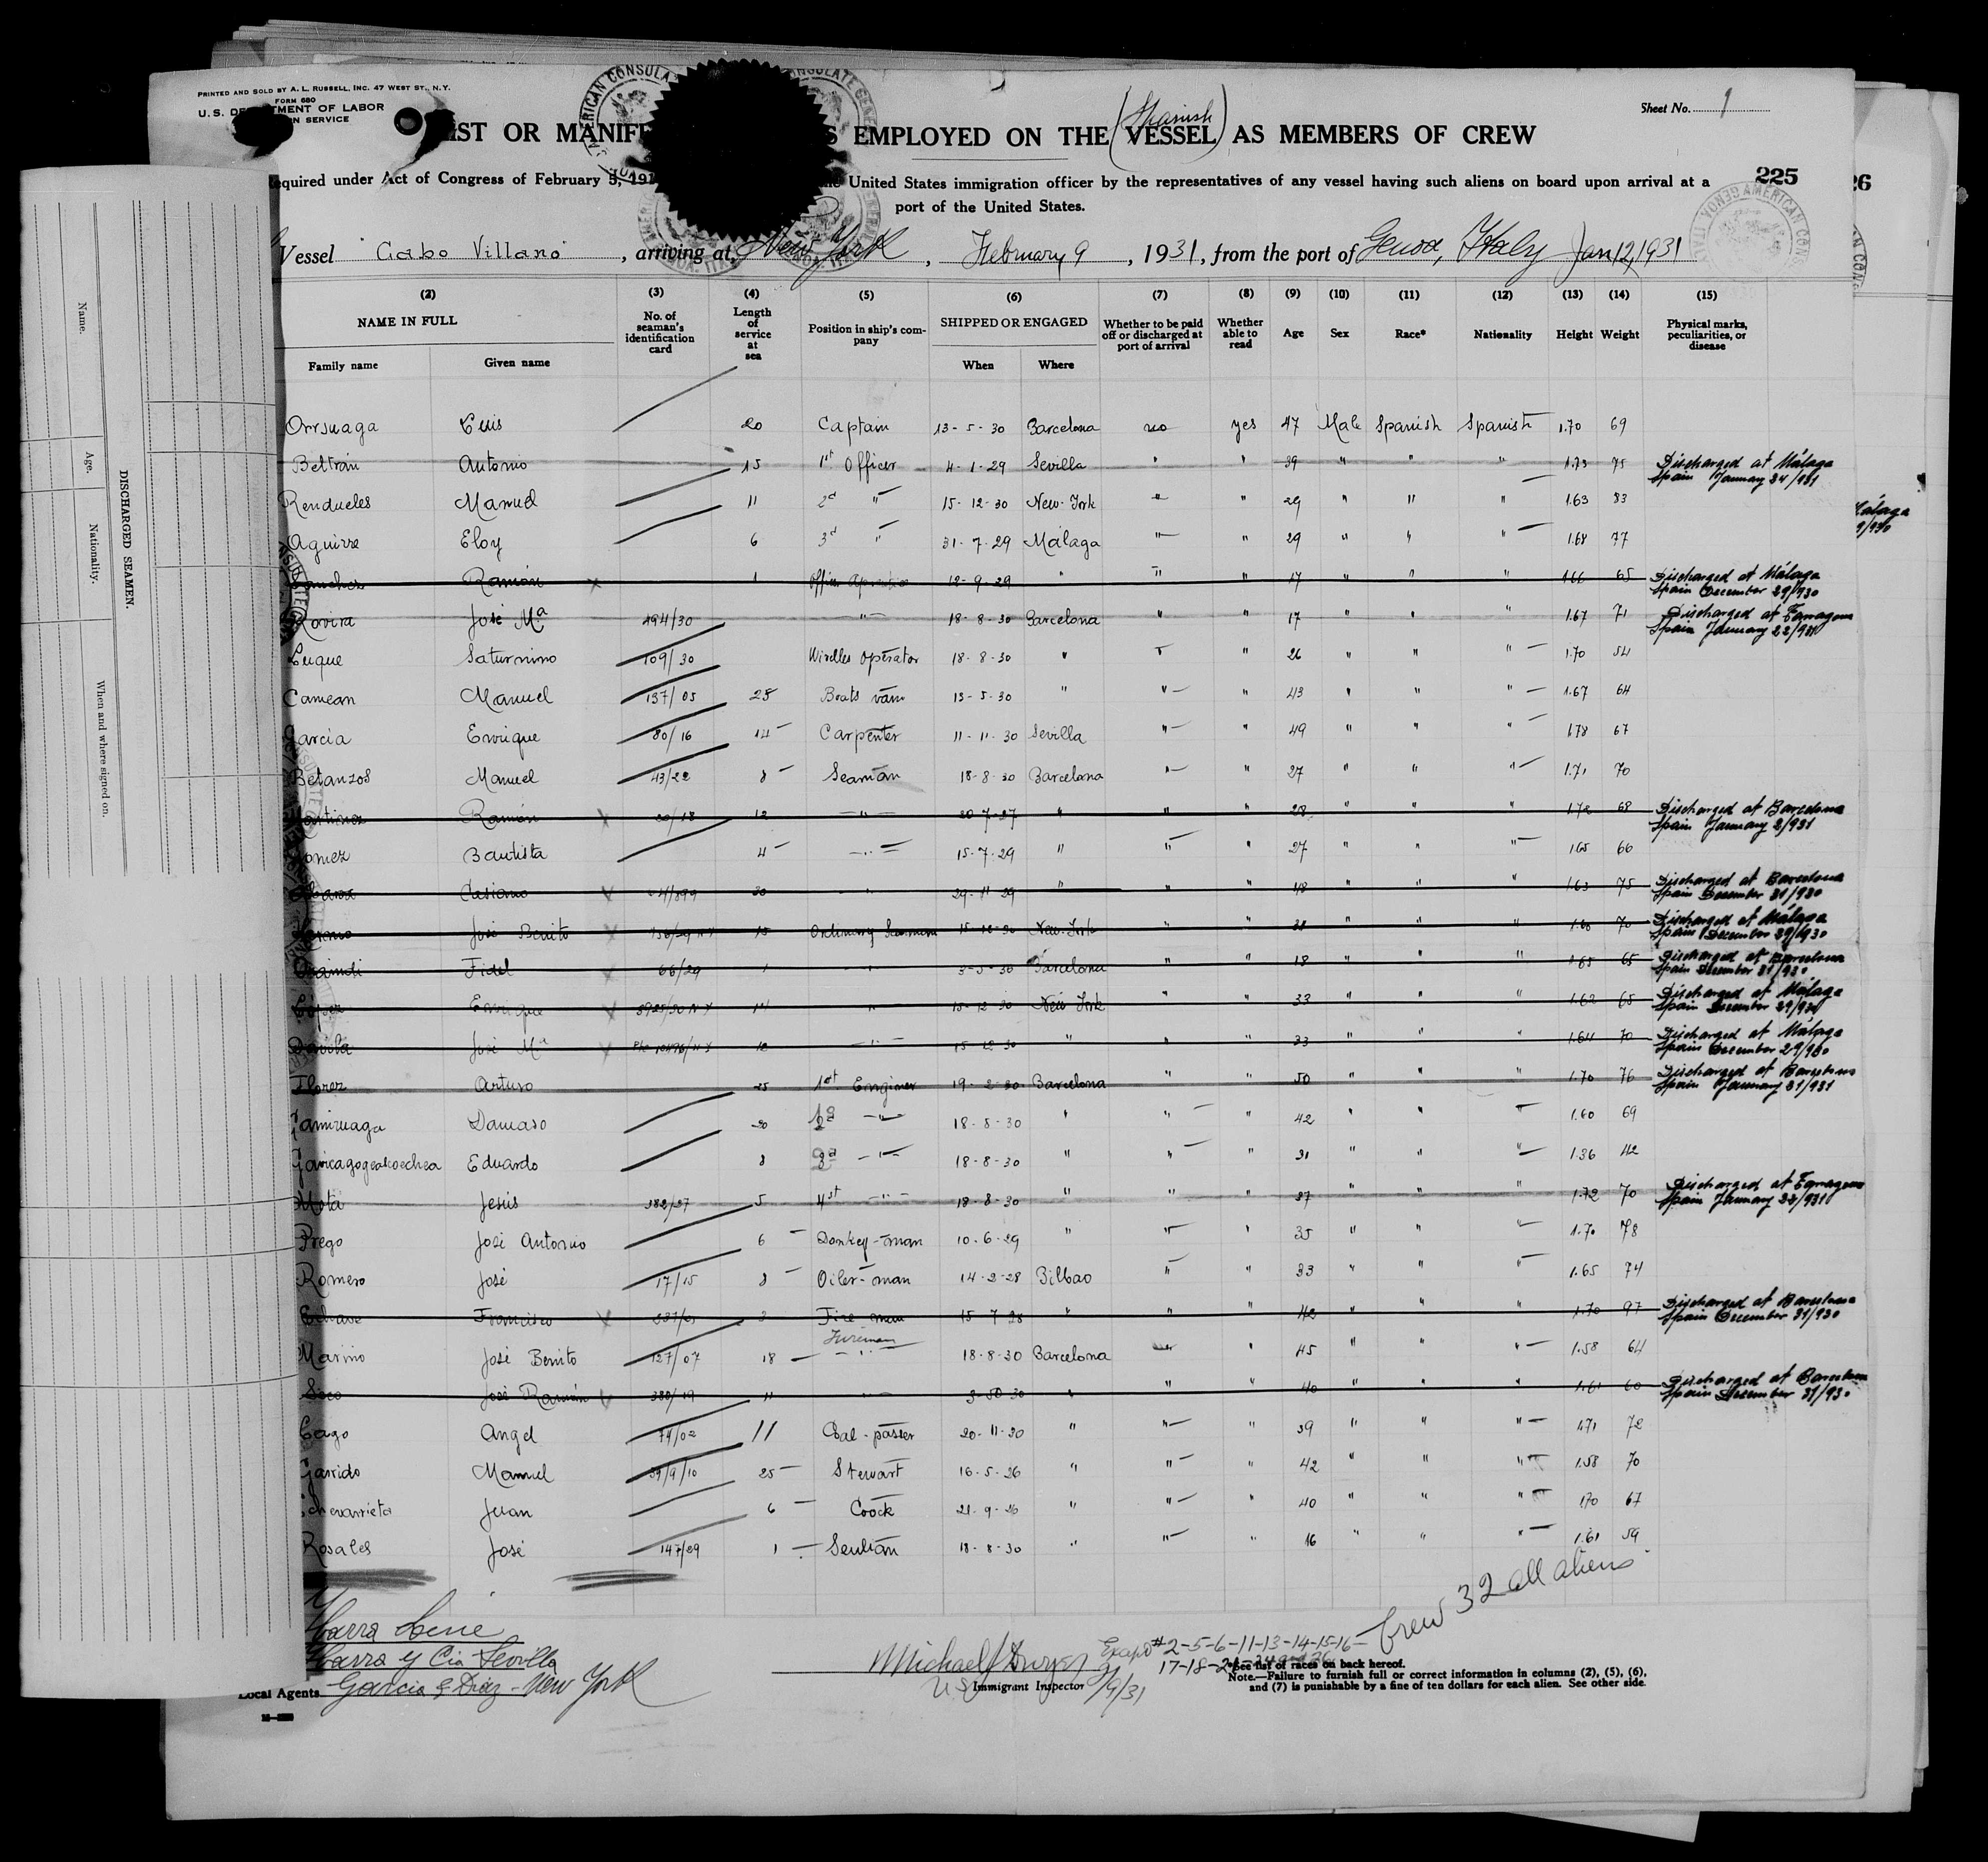 PRINTED AND SOLD BY A. L. RUSSELL, INC. 47 WEST ST., N.Y.
FORM 680
U. S. DE TMENT OF LABOR
N SERVICE
Sheet No. 1
IST OR MANIF S EMPLOYED ON THE (VESSEL) AS MEMBERS OF CREW
Spanish
225
26
equired under Act of Congress of February 5, 191 United States immigration officer by the representatives of any vessel having such aliens on board upon arrival at a
port of the United States.
Vessel "Cabo Villano", arriving at New York, February 9, 1931, from the port of Genoa, Italy Jan 12, 1931
(2) (3) (4) (5) (6) (7) (8) (9) (10) (11) (12) (13) (14) (15)
NAME IN FULL No. of seaman's identification card Length of service at sea Position in ship's company SHIPPED OR ENGAGED Whether to be paid off or discharged at port of arrival Whether able to read Age Sex Race* Nationality Height Weight Physical marks, peculiarities, or disease
Family name Given name When Where
Orrsuaga Luis 20 Captain 13-5-30 Barcelona no yes 47 Male Spanish Spanish 1.70 69
Beltrán Antonio 15 1st Officer 4-1-29 Sevilla " " 39 " " " 1.73 75 Discharged at Málaga Spain January 24/931
Rendueles Manuel 11 2d " 15-12-30 New-York " " 29 " " " 1.63 83
Aguirre Eloy 6 3d " 31-7-29 Málaga " " 29 " " " 1.68 77
Ramón 1 12-9-29 " " " 17 " " " 1.66 65 Discharged at Málaga Spain December 29/930
Rovira José Mª 494/30 " 18-8-30 Barcelona " " 17 " " " 1.67 71 Discharged at Tarragona Spain January 22/931
Luque Saturnino 109/30 Wirelles operator 18-8-30 " " " 26 " " " 1.70 54
Camean Manuel 137/05 28 Boats vain 13-5-30 " " " 43 " " " 1.67 64
García Enrique 80/16 14 Carpenter 11-11-30 Sevilla " " 49 " " " 1.78 67
Betanzos Manuel 43/22 8 Seaman 18-8-30 Barcelona " " 27 " " " 1.71 70
Martinez Ramón 20/18 12 " 20-7-27 " " " 28 " " " 1.72 68 Discharged at Barcelona Spain January 2/931
omez Bautista 4 " 15-7-29 " " " 27 " " " 1.65 66
Casiano 20 " 29-11-29 " " " 48 " " " 1.63 75 Discharged at Barcelona Spain December 31/930
José Benito 15 Ordinary Seaman 15-12-30 New-York " " " " " 1.60 70 Discharged at Málaga Spain December 29/930
Fidel 66/29 1 " 3-5-30 Barcelona " " 18 " " " 1.65 65 Discharged at Barcelona Spain December 31/930
López Enrique 14 " 15-12-30 New York " " 33 " " " 1.62 65 Discharged at Málaga Spain December 29/930
José Mª 12 " 15-12-30 " " " 33 " " " 1.64 70 Discharged at Málaga Spain December 29/930
Florez Arturo 25 1st Enginer 19-2-30 Barcelona " " 50 " " " 1.70 76 Discharged at Barcelona Spain January 31/931
Damaso 20 2d " 18-8-30 " " " 42 " " " 1.60 69
Garicagogeakoechea Eduardo 8 3d " 18-8-30 " " " 31 " " " 1.36 42
Mota Jesús 382/27 5 4st " 18-8-30 " " " 37 " " " 1.72 70 Discharged at Tarragona Spain January 22/931
Prego José Antonio 6 Donkey-man 10-6-29 " " " 35 " " " 1.70 78
Romero José 17/15 8 Oiler-man 14-2-28 Bilbao " " 33 " " " 1.65 74
Echave Francisco 2 Fire man 15-7-28 " " " 42 " " " 1.70 97 Discharged at Barcelona Spain December 31/930
Fireman
Marino José Benito 127/07 18 " 18-8-30 Barcelona " " 45 " " " 1.58 64
José Ramón 380/19 11 " " " " 40 " " " 1.61 60 Discharged at Barcelona Spain December 31/930
Lago Angel 74/02 11 Coal-passer 20-11-30 " " " 39 " " " 1.71 72
Garrido Manuel 39/9/10 25 Stewart 16-5-26 " " " 42 " " " 1.58 70
Echevarrieta Juan 6 Coock 21-9-26 " " " 40 " " " 170 67
Rosales José 147/29 1 18-8-30 " " " 16 " " " 1.61 59
Crew 32 all aliens
Ybarra Line
Ybarra y Cia Sevilla
Local Agents Garcia & Diaz - New York
Michael J Dwyer
U.S. Immigrant Inspector 2/9/31
Except #2-5-6-11-13-14-15-16-
17-18-21-24
*See list of races on back hereof.
Note.—Failure to furnish full or correct information in columns (2), (5), (6),
and (7) is punishable by a fine of ten dollars for each alien. See other side.
DISCHARGED SEAMEN.
Name.
Age.
Nationality.
When and where signed on.
AMERICAN CONSULATE GENERAL
GENOA ITALY